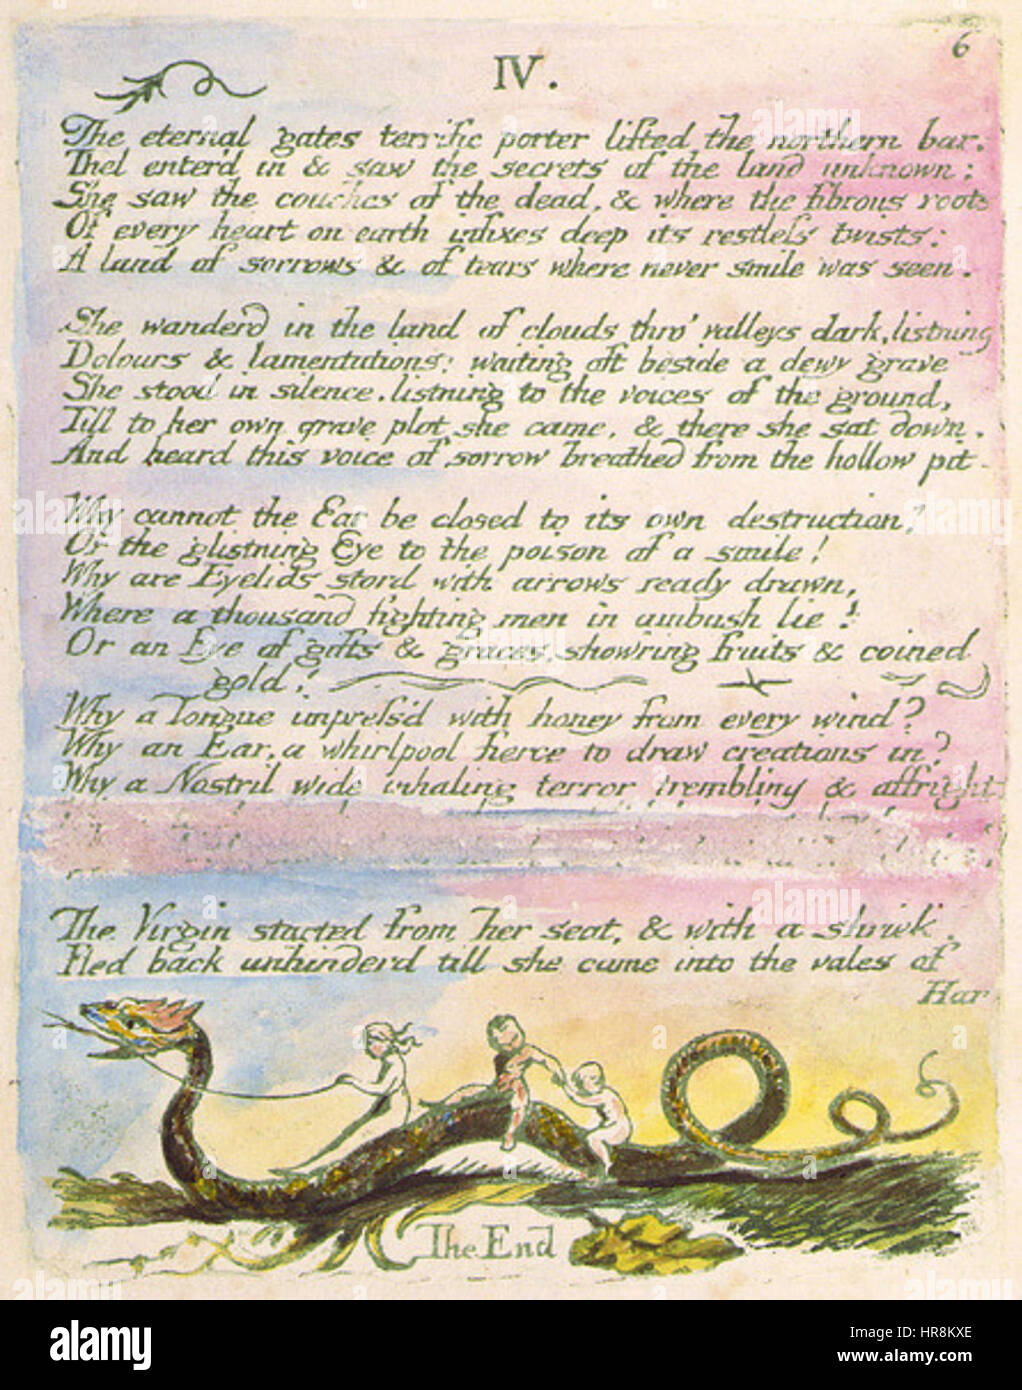 6
IV.
The eternal gates terrific porter lifted the northern bar.
Thel enterd in & saw the secrets of the land unknown;
She saw the couches of the dead, & where the fibrous roots
Of every heart on earth infixes deep its restless twists:
A land of sorrows & of tears where never smile was seen.
She wanderd in the land of clouds thro' valleys dark, listning
Dolours & lamentations: waiting oft beside a dewy grave
She stood in silence, listning to the voices of the ground,
Till to her own grave plot she came, & there she sat down.
And heard this voice of sorrow breathed from the hollow pit.
Why cannot the Ear be closed to its own destruction?
Or the glistning Eye to the poison of a smile!
Why are Eyelids stord with arrows ready drawn,
Where a thousand fighting men in ambush lie!
Or an Eye of gifts & graces, showring fruits & coined
gold!
Why a Tongue impress'd with honey from every wind?
Why an Ear, a whirlpool fierce to draw creations in?
Why a Nostril wide inhaling terror trembling & affright
The Virgin started from her seat, & with a shriek.
Fled back unhinderd till she came into the vales of
Har
The End
alamy
Image ID: HR8KXE
www.alamy.com